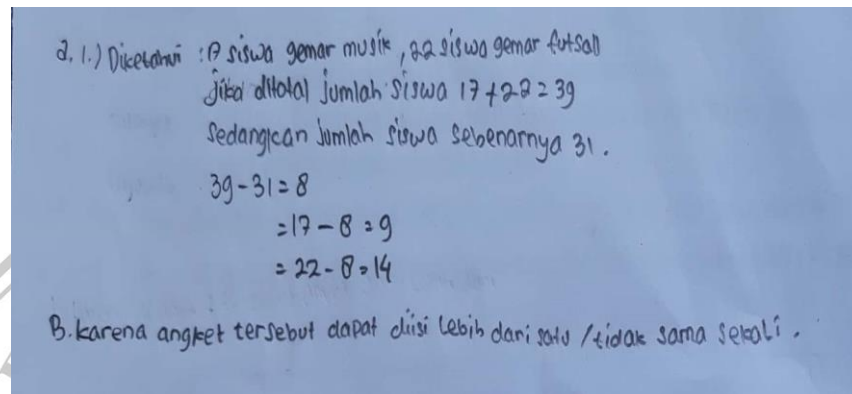 a. 1.) Diketahui : 17 siswa gemar musik, 22 siswa gemar futsal
jika ditotal jumlah siswa 17 + 22 = 39
Sedangkan jumlah siswa sebenarnya 31.
39 - 31 = 8
= 17 - 8 = 9
= 22 - 8 = 14
B. karena angket tersebut dapat diisi lebih dari satu / tidak sama sekali.